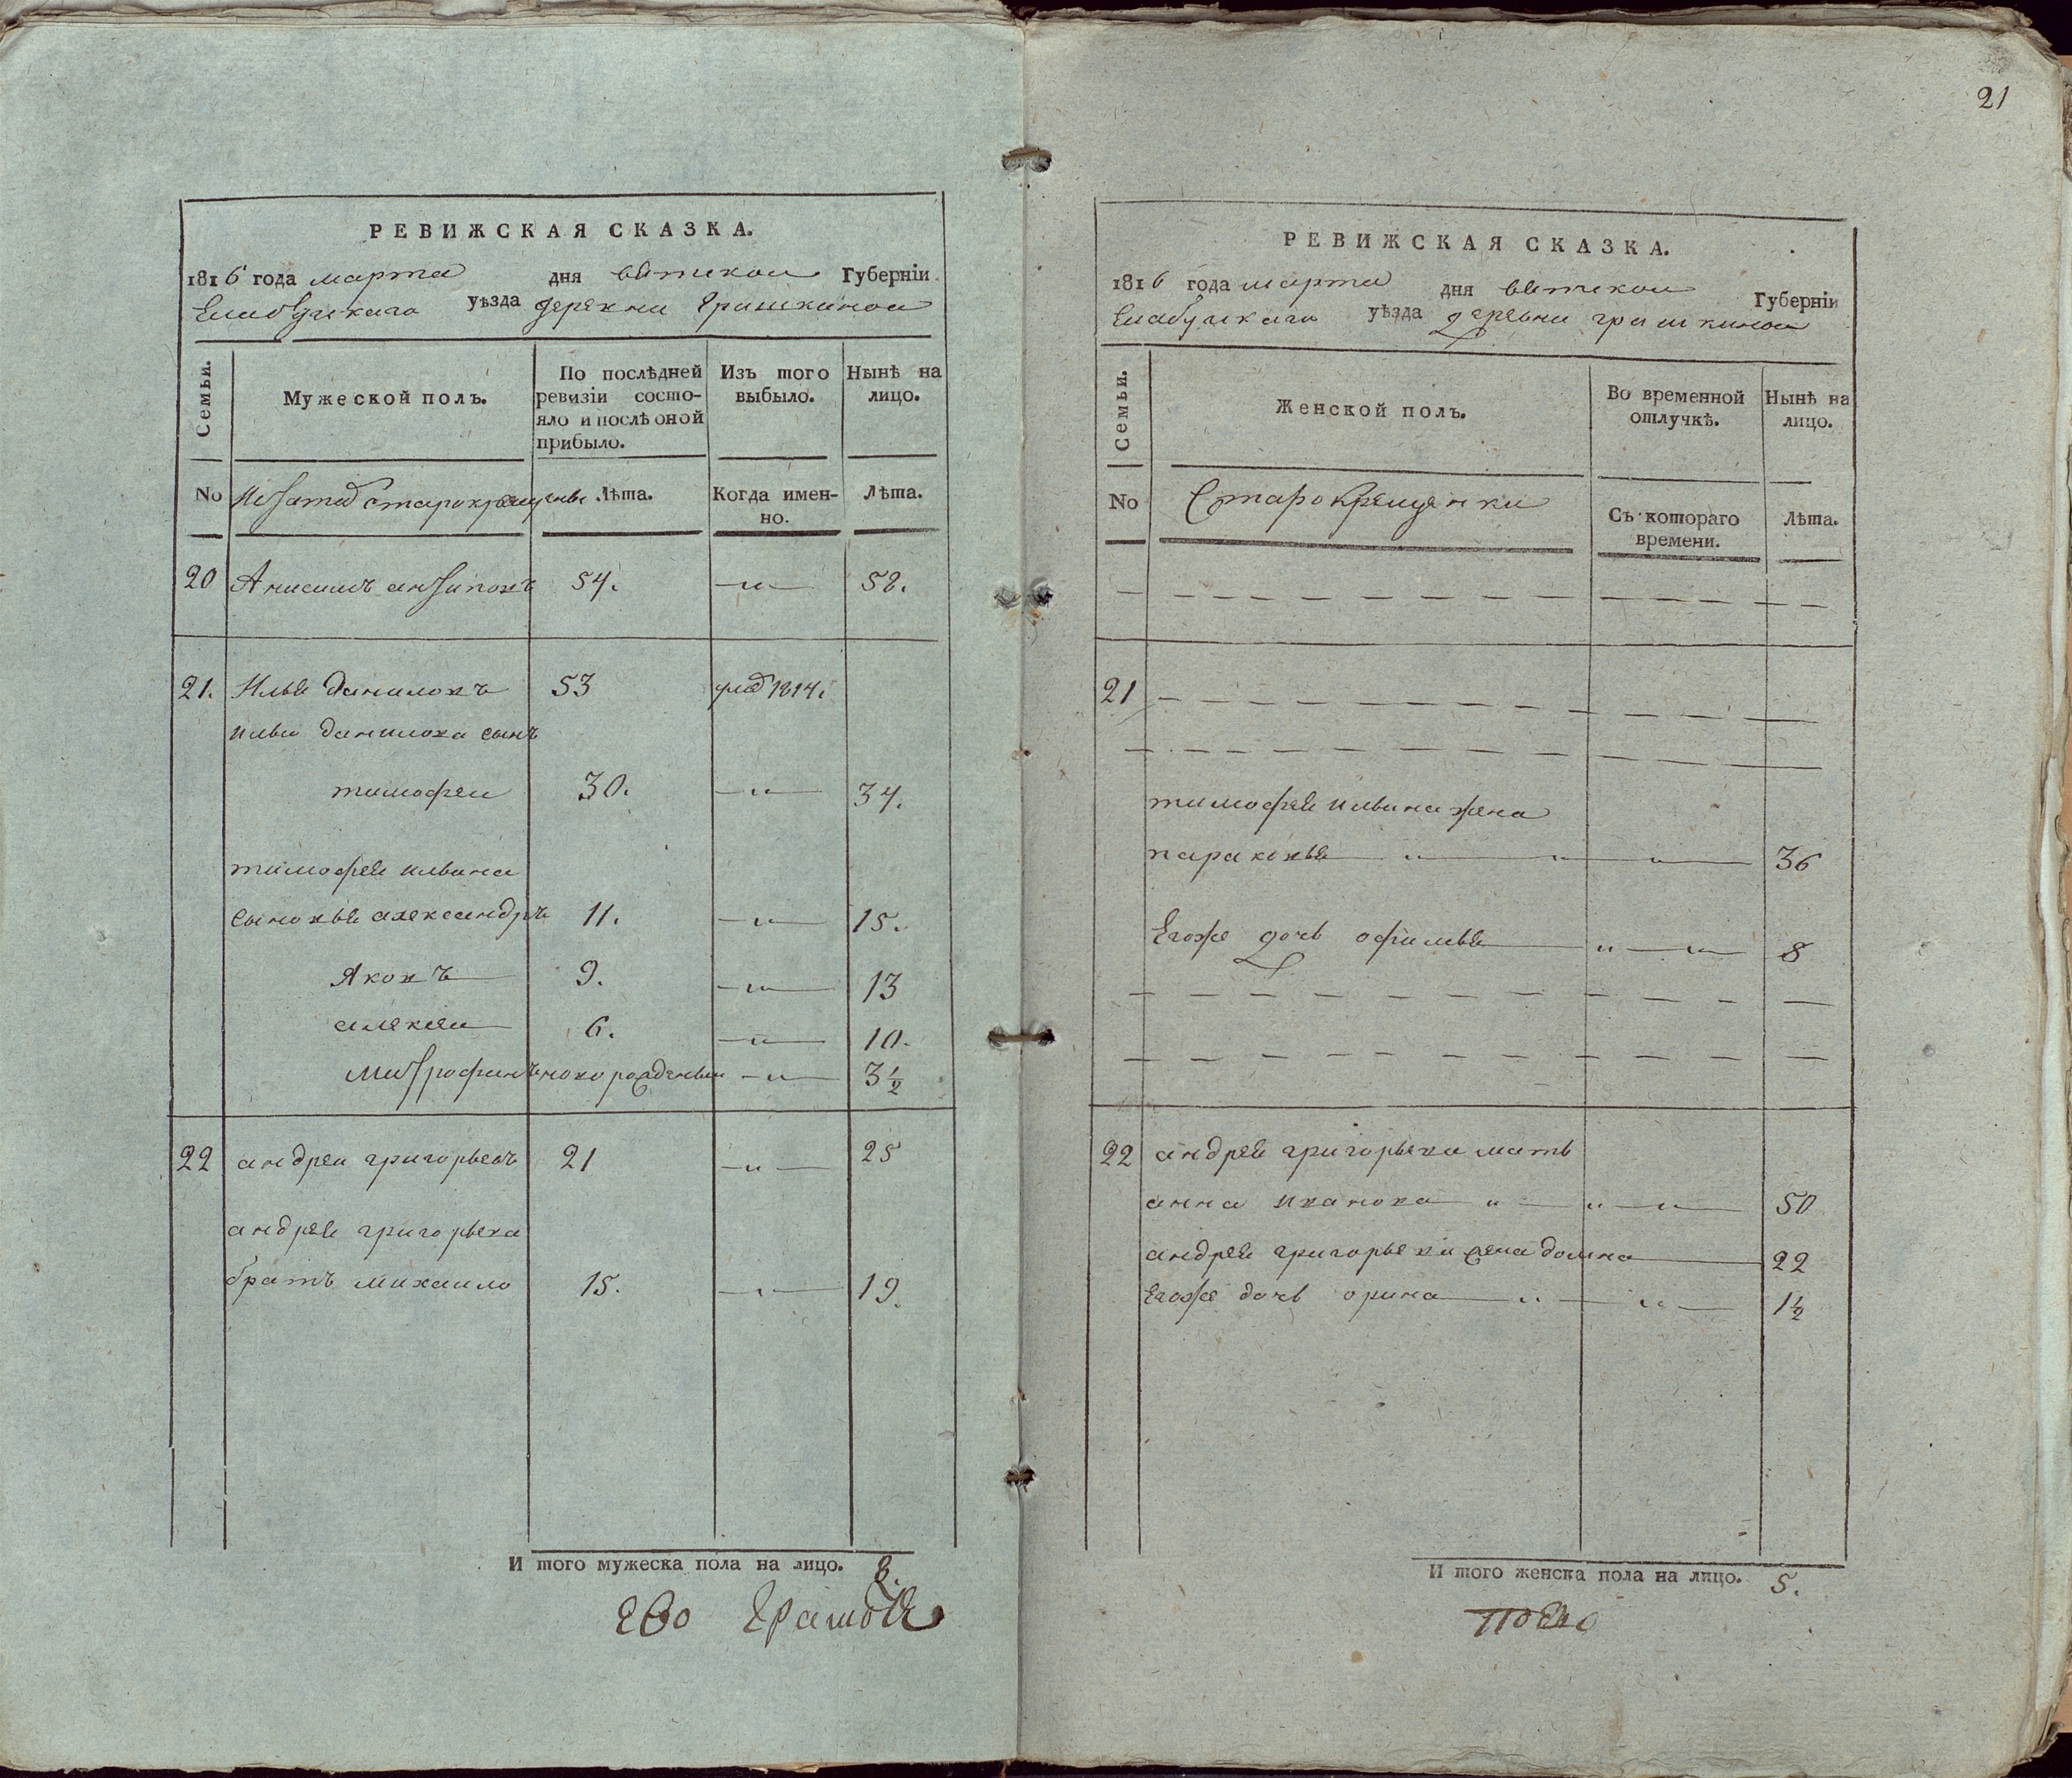 21
РЕВИЖСКАЯ СКАЗКА.
1816 года марта дня вятскои Губерніи
Елабужскаго уѣзда деревни Гришкинои
Семьи.
Мужеской полъ.
По послѣдней ревизіи состо-
яло и послѣ оной
прибыло.
Изъ того
выбыло.
Нынѣ на
лицо.
No старокрещены Лѣта. Когда имен-
но. Лѣта.
20 Анисимъ антиповъ 54. —„— 58.
21. Илья даниловъ 53 1814.
ильи данилова сынъ
тимофеи 30. —„— 34.
тимофея ильина
сыновья александръ 11. —„— 15.
Яковъ 9. —„— 13
алексеи 6. —„— 10.
митрофанъ новорожденныи —„— 3 1/2
22 андреи григорьевъ 21 —„— 25
андрея григорьева
братъ михаило 15. —„— 19.
И того мужеска пола на лицо. 8.
РЕВИЖСКАЯ СКАЗКА.
1816 года марта дня вятскои Губерніи
Елабужскаго уѣзда деревни гришкинои
Семьи.
Женской полъ.
Во временной
отлучкѣ.
Нынѣ на
лицо.
No Старокрещенки Съ котораго
времени. Лѣта.
21
тимофея ильина жена
парасковья „ „ „ 36
Егоже дочь офимья „ „ 8
22 андрея григорьева мать
анна иванова „ „ „ 50
андрея григорьева жена домна 22
Егоже дочь орина „ „ 1 1/2
И того женска пола на лицо. 5.